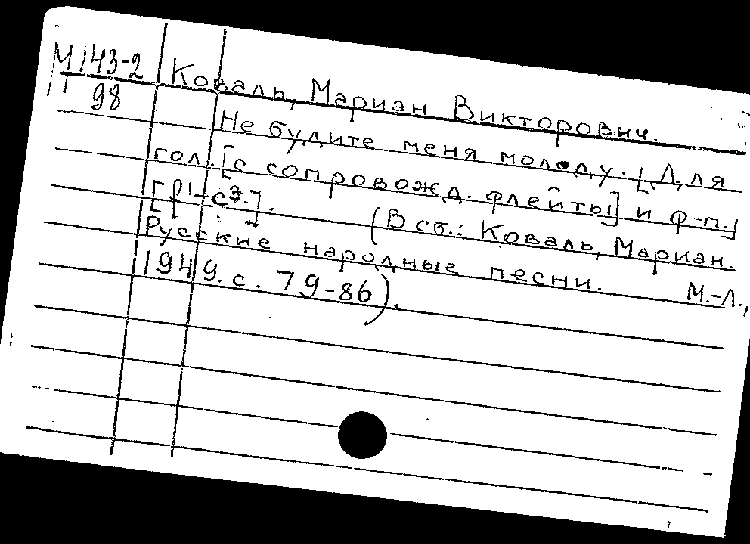 М 143-2
98
Коваль, Мариан Викторович.
Не будите меня молоду. [Для
гол. [с сопровожд. флейты] и ф-п.]
[f¹-c³.]. (В сб.: Коваль, Мариан.
Русские народные песни. М.-Л.,
1949. с. 79-86).